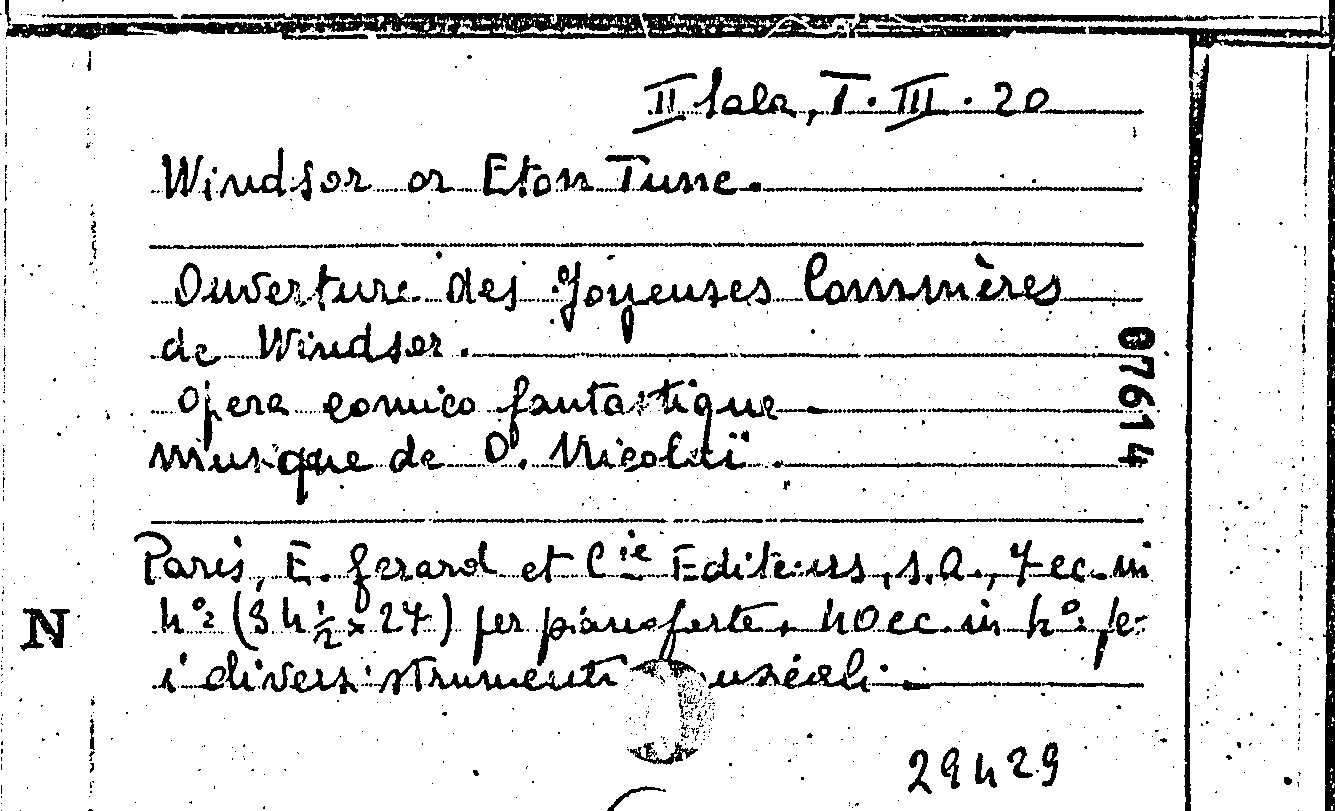 II Sala, T. III. 20
Windsor or Eton Tune.
Ouverture des Joyeuses Commères
de Windsor.
Opera comico fantastique
musique de O. Nicolaï.
07614
Paris, E. Gerard et Cie Editeurs, s.a., 7 ec. in
4º (34½ x 27) per pianoforte, 40 ec. in 4º pe
i diversi strumenti musicali.
N
29429